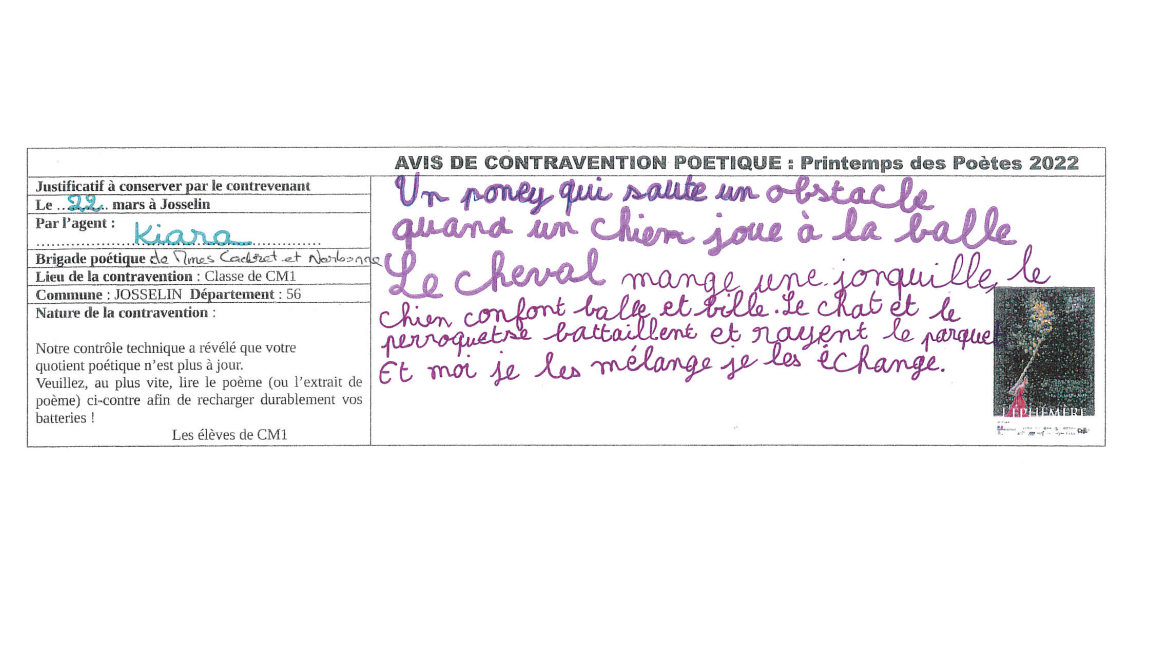 AVIS DE CONTRAVENTION POETIQUE : Printemps des Poètes 2022
Justificatif à conserver par le contrevenant
Le ..22.. mars à Josselin
Par l'agent :
Kiara
Brigade poétique de Mmes et Narbonne
Lieu de la contravention : Classe de CM1
Commune : JOSSELIN Département : 56
Nature de la contravention :
Notre contrôle technique a révélé que votre
quotient poétique n'est plus à jour.
Veuillez, au plus vite, lire le poème (ou l'extrait de
poème) ci-contre afin de recharger durablement vos
batteries !
Les élèves de CM1
Un poney qui saute un obstacle
quand un chien joue à la balle
Le cheval mange une jonquille, le
chien confont balle et bille. Le chat et le
perroquetse battaillent et rayent le parquet
Et moi je les mélange je les échange.
L'ÉPHÉMÈRE